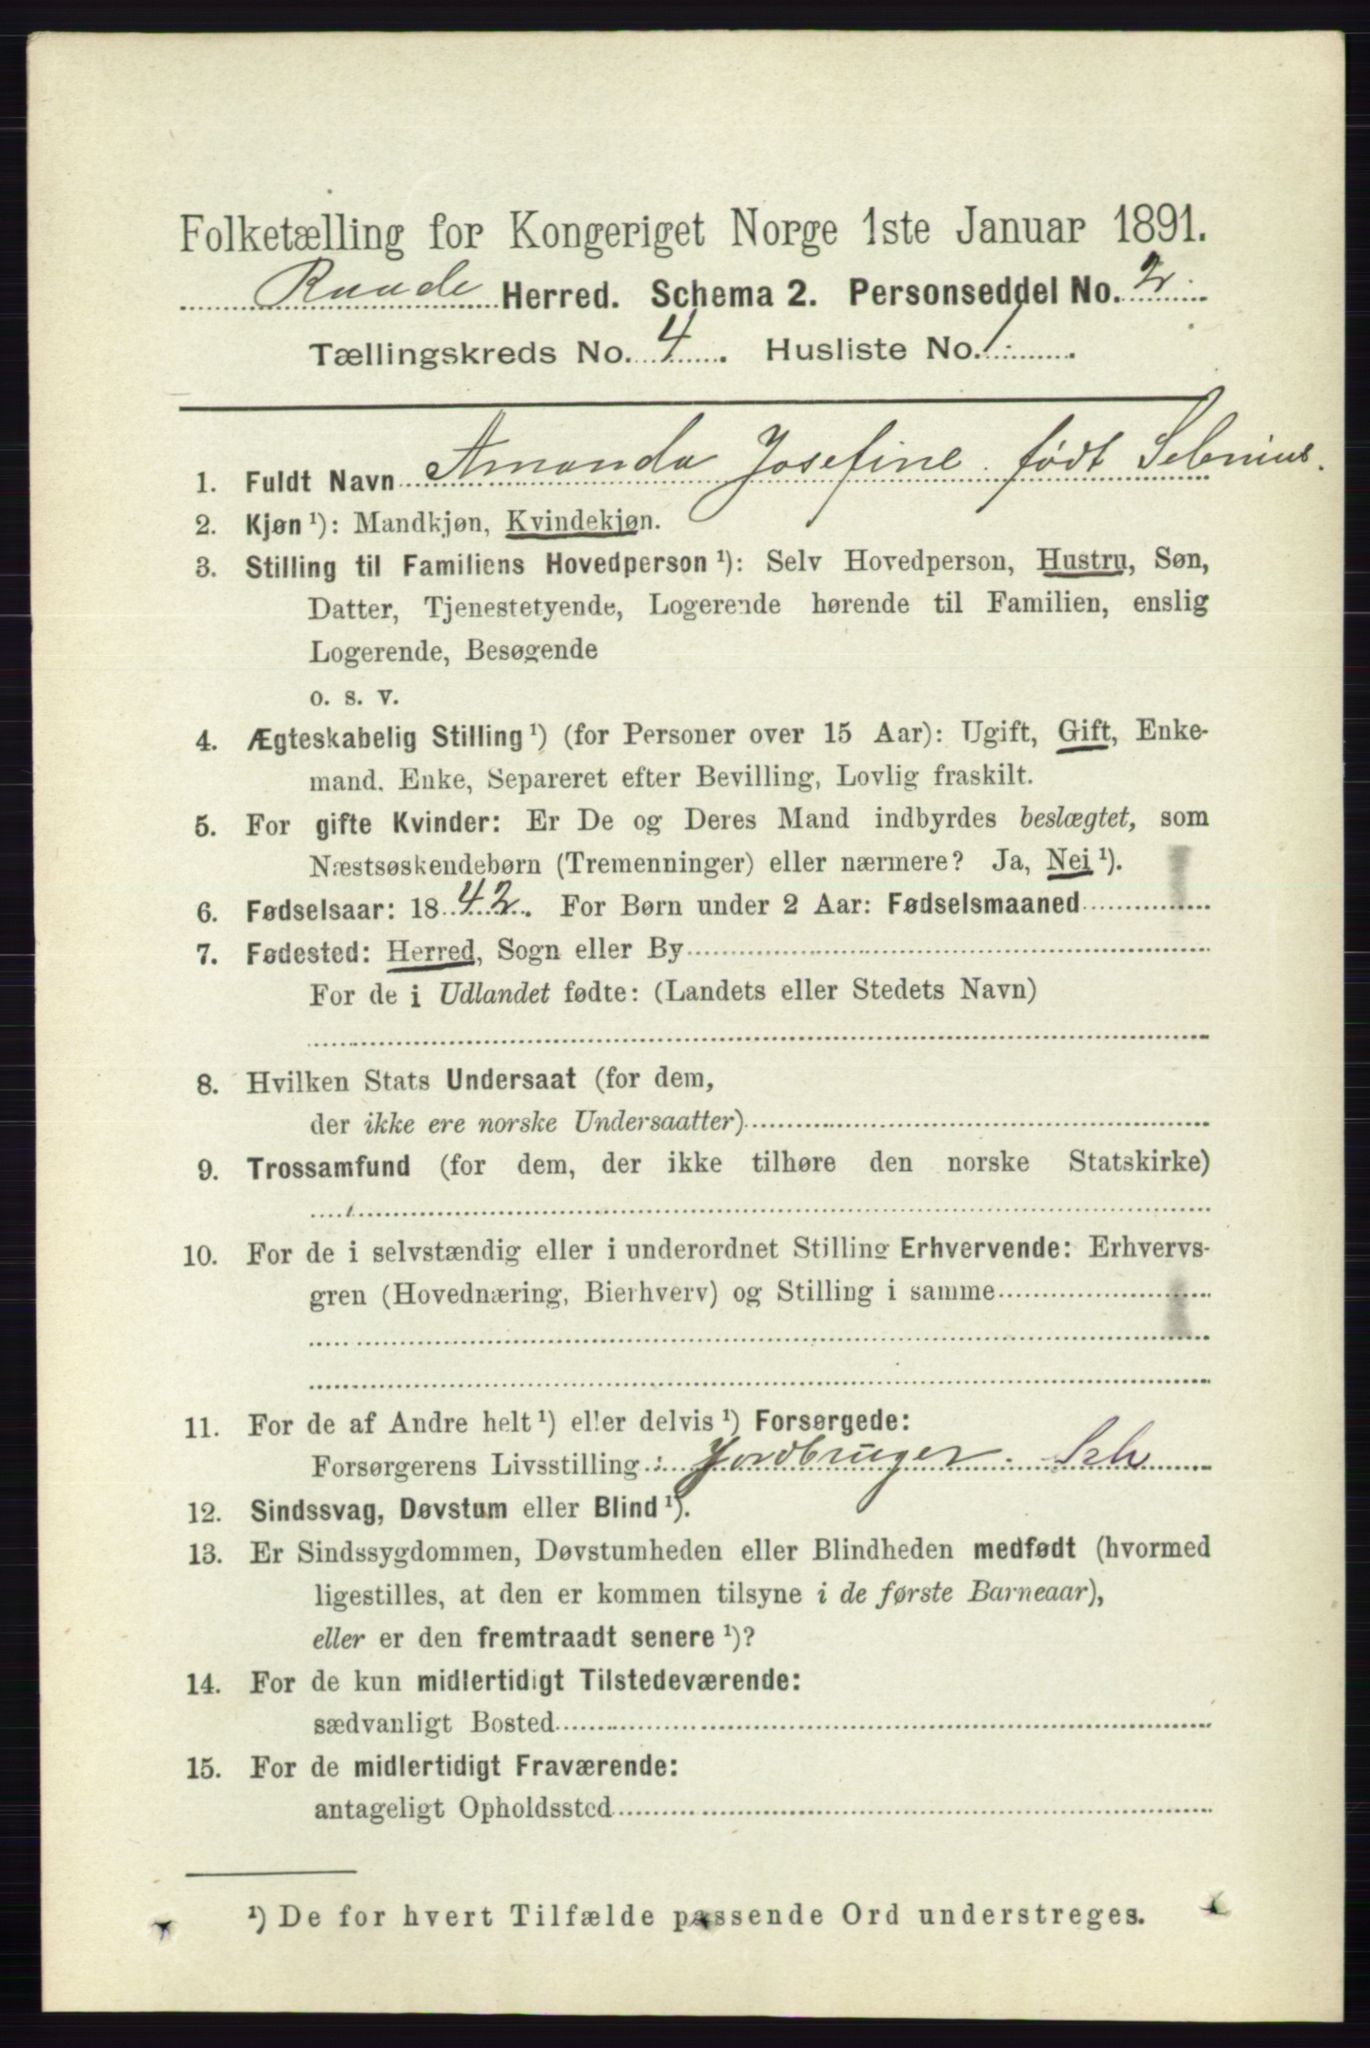 Folketælling for Kongeriget Norge 1ste Januar 1891.
Raade Herred. Schema 2. Personseddel No. 2
Tællingskreds No. 4. Husliste No. 1.
1. Fuldt Navn Amanda Josefine født
2. Kjøn ¹): Mandkjøn, Kvindekjøn.
3. Stilling til Familiens Hovedperson ¹): Selv Hovedperson, Hustru, Søn,
Datter, Tjenestetyende, Logerende hørende til Familien, enslig
Logerende, Besøgende
o. s. v.
4. Ægteskabelig Stilling ¹) (for Personer over 15 Aar): Ugift, Gift, Enke-
mand. Enke, Separeret efter Bevilling, Lovlig fraskilt.
5. For gifte Kvinder: Er De og Deres Mand indbyrdes beslægtet, som
Næstsøskendebørn (Tremenninger) eller nærmere? Ja, Nei ¹).
6. Fødselsaar: 1842. For Børn under 2 Aar: Fødselsmaaned
7. Fødested: Herred, Sogn eller By
For de i Udlandet fødte: (Landets eller Stedets Navn)
8. Hvilken Stats Undersaat (for dem,
der ikke ere norske Undersaatter)
9. Trossamfund (for dem, der ikke tilhøre den norske Statskirke)
10. For de i selvstændig eller i underordnet Stilling Erhvervende: Erhvervs-
gren (Hovednæring, Bierhverv) og Stilling i samme
11. For de af Andre helt ¹) eller delvis ¹) Forsørgede:
Forsørgerens Livsstilling: Jordbruger. Selv
12. Sindssvag, Døvstum eller Blind ¹).
13. Er Sindssygdommen, Døvstumheden eller Blindheden medfødt (hvormed
ligestilles, at den er kommen tilsyne i de første Barneaar),
eller er den fremtraadt senere ¹)?
14. For de kun midlertidigt Tilstedeværende:
sædvanligt Bosted
15. For de midlertidigt Fraværende:
antageligt Opholdssted
¹) De for hvert Tilfælde passende Ord understreges.